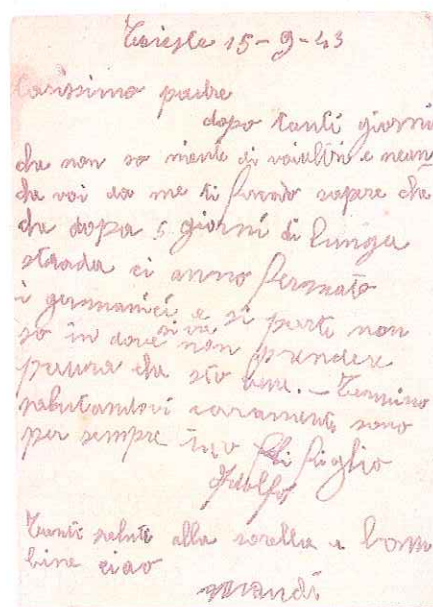 Trieste 15-9-43
Carissimo padre
dopo tanti giorni
che non so niente di voialtri e nean
che voi da me ti facendo sapere che
che dopo 5 giorni di lunga
strada ci anno fermato
i germanici e si parti non
so in dove si va non prender
paura che sto bene. - Termino
salutandovi caramente sono
per sempre tuo figlio
Adolfo
Tanti saluti alla sorella e bam
bine ciao
mandi